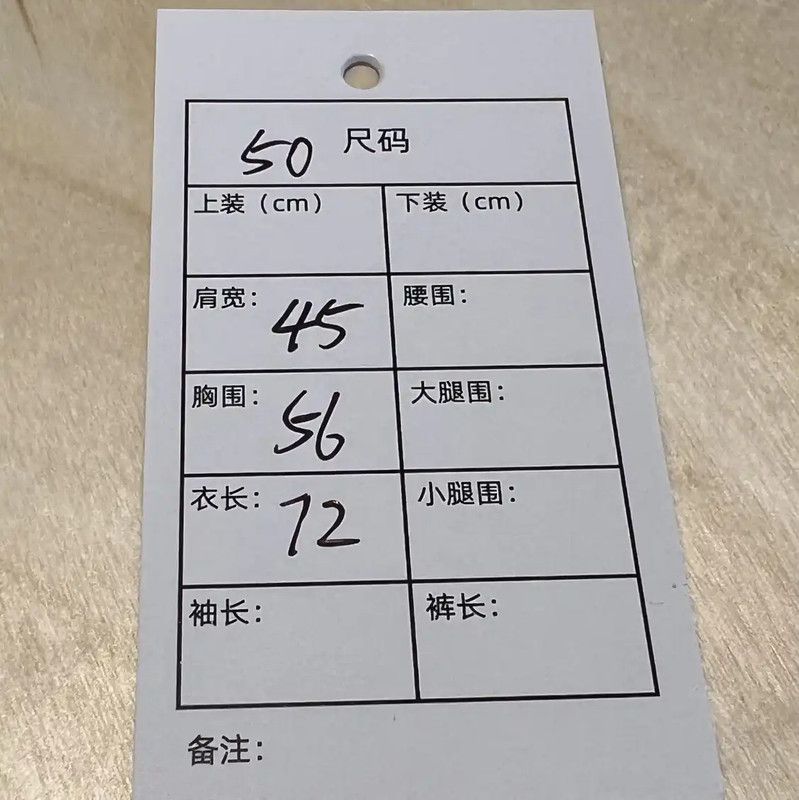 50 尺码
上装（cm） 下装（cm）
肩宽：45 腰围：
胸围：56 大腿围：
衣长：72 小腿围：
袖长： 裤长：
备注：